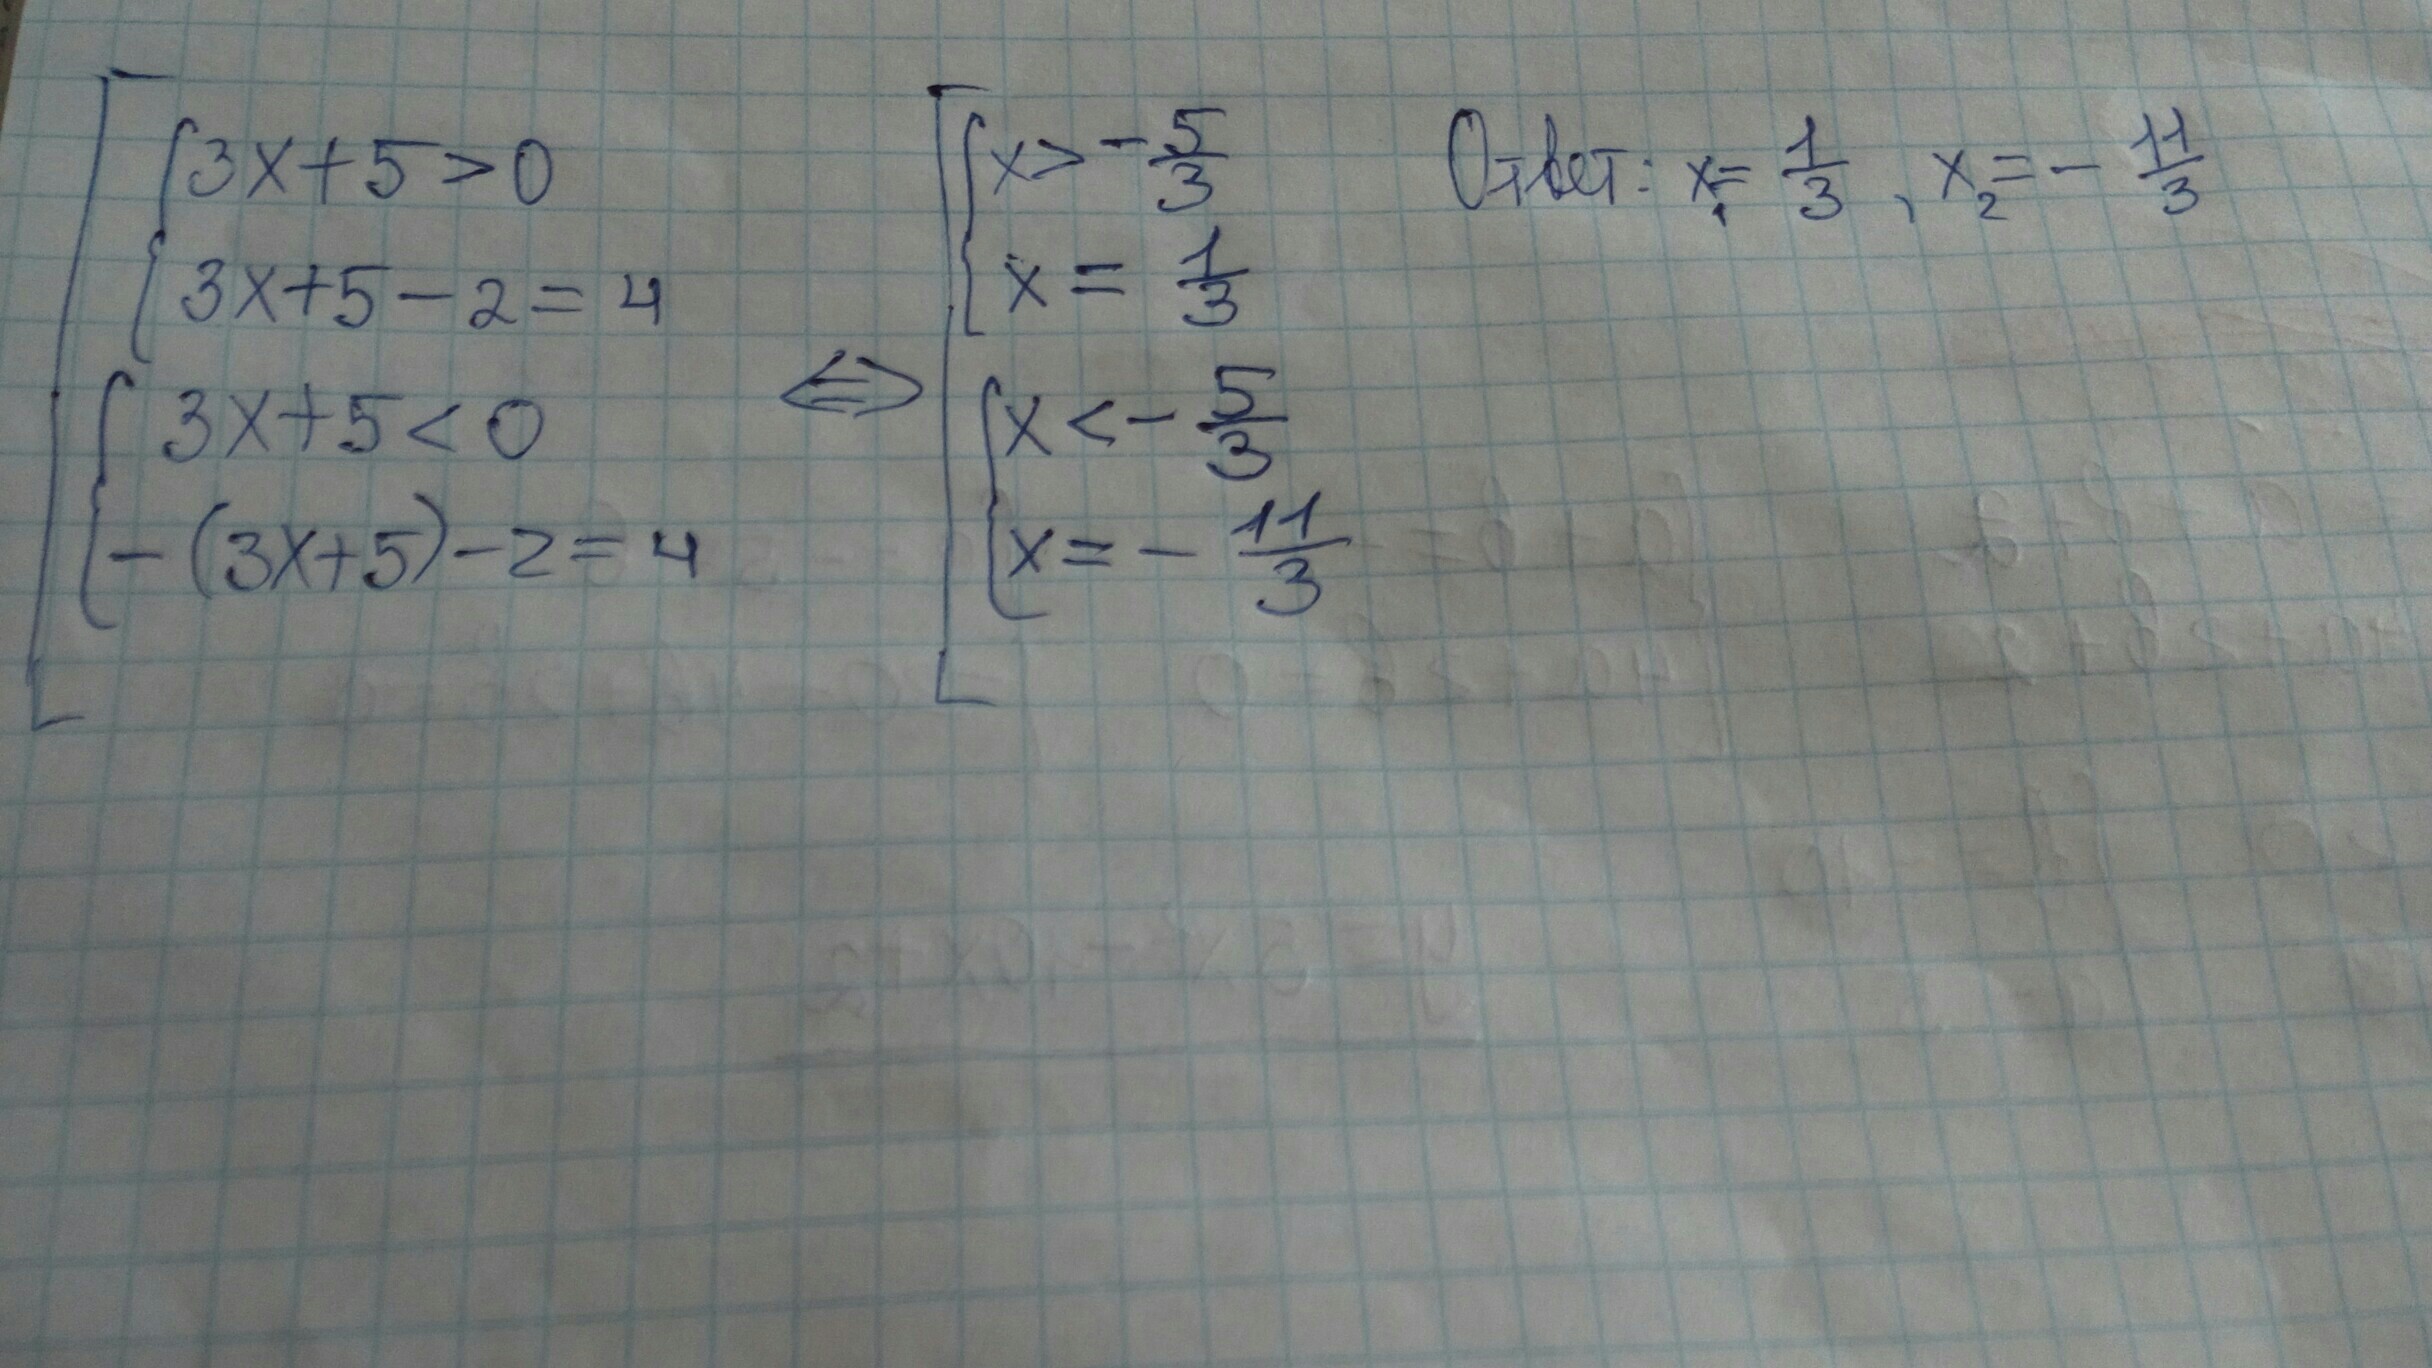 3x+5>0
3x+5-2=4
3x+5<0
-(3x+5)-2=4
⇔
x>-5/3
x=1/3
x<-5/3
x=-11/3
Ответ: x₁=1/3, x₂=-11/3